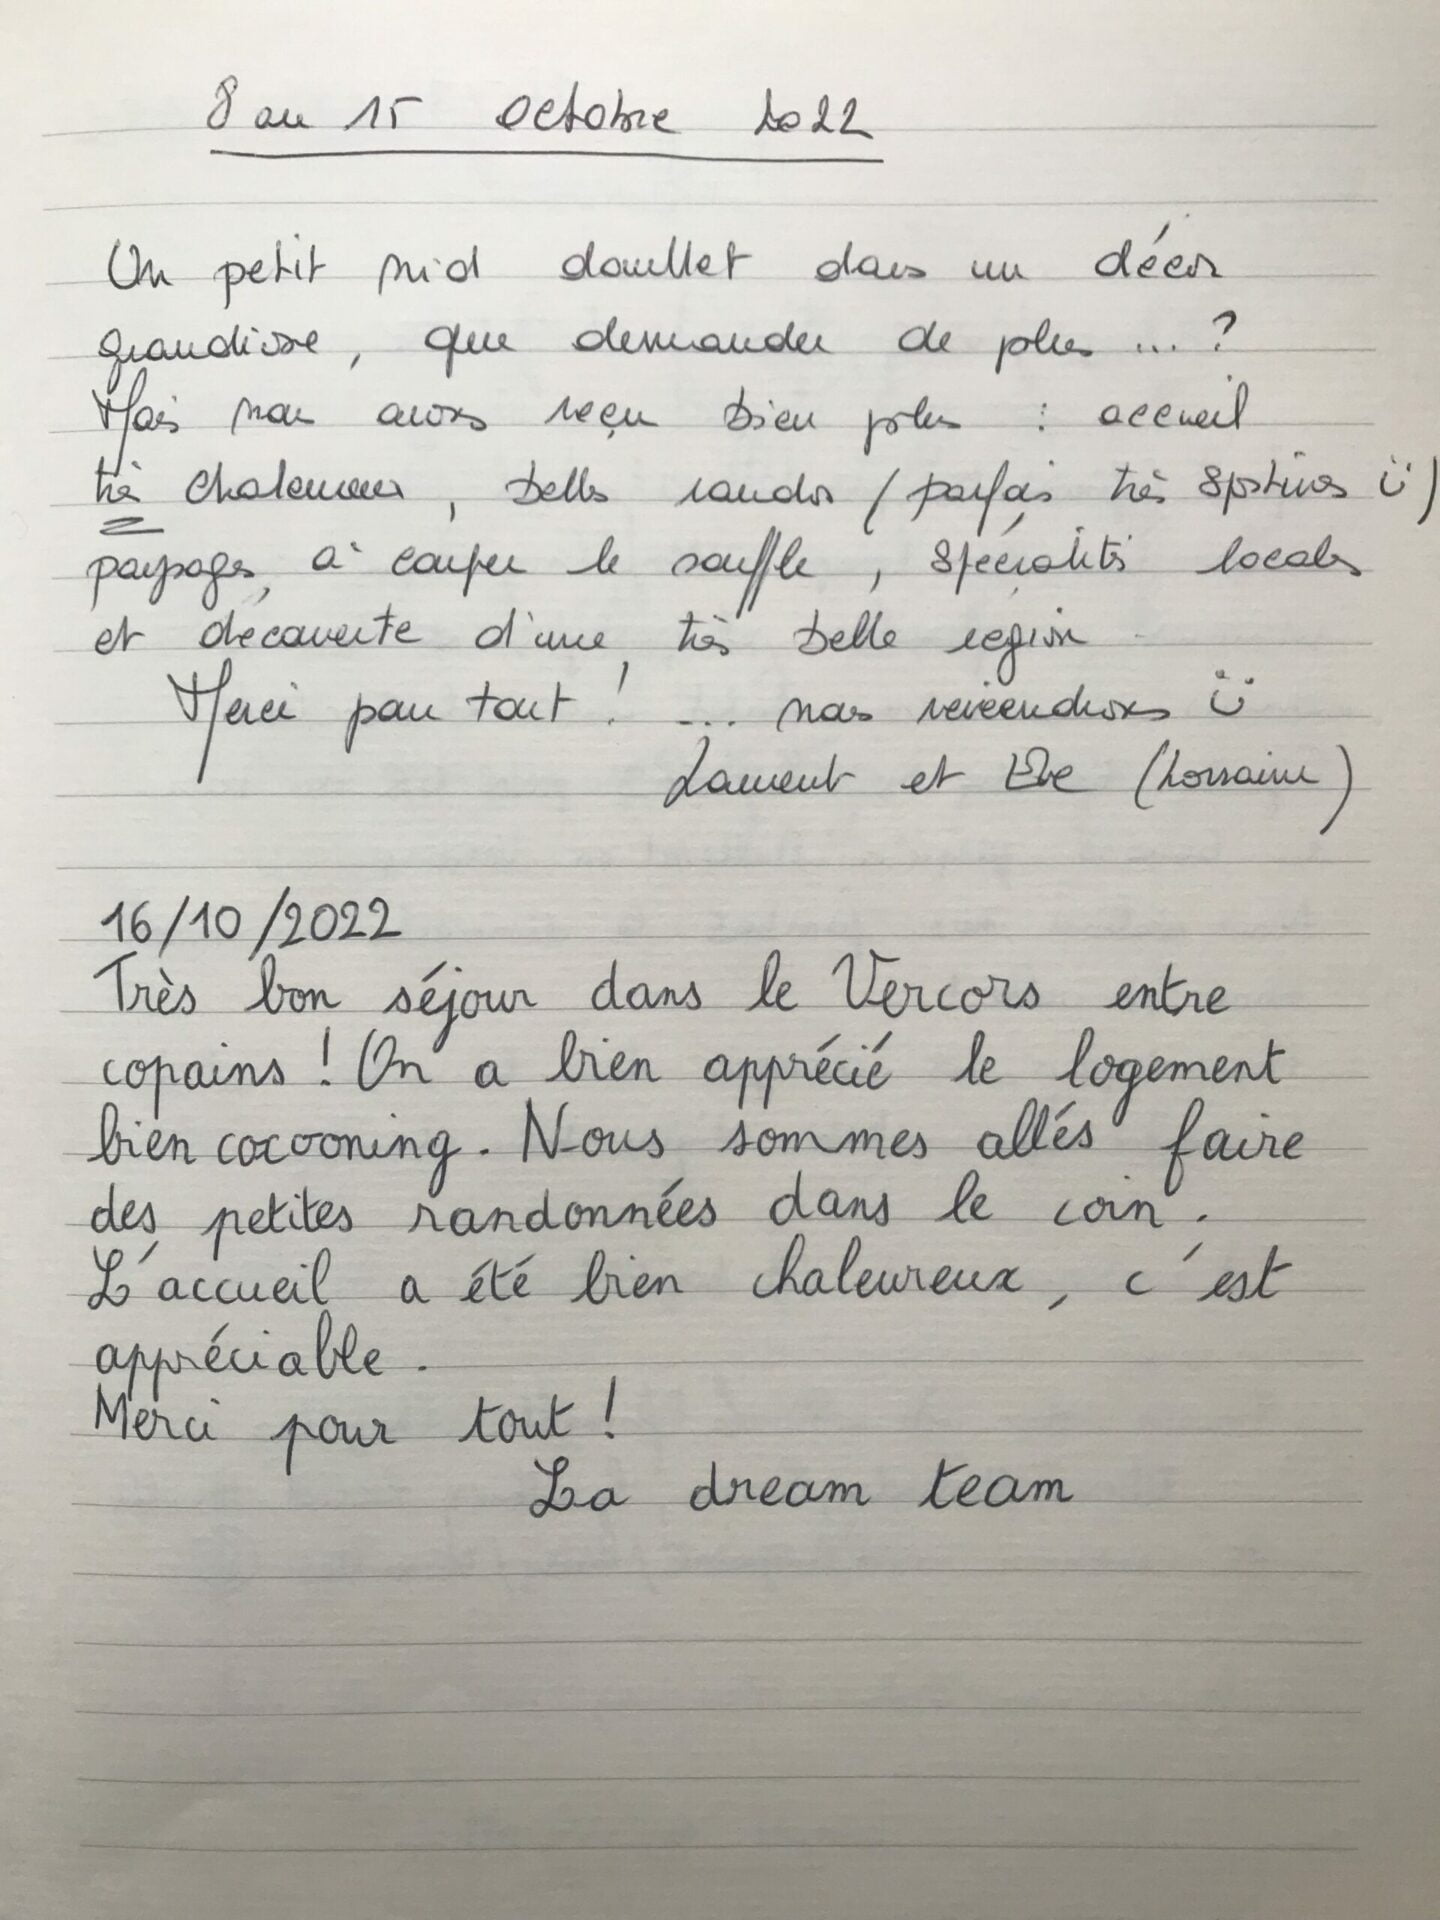 8 au 15 octobre 2022
Un petit nid douillet dans un décor
grandiose, que demander de plus ... ?
Mais nous avons reçu bien plus : accueil
très chaleureux, belles randos (parfois très sportives ü)
paysages à couper le souffle, spécialités locales
et découverte d'une très belle région
Merci pour tout ! ... nous reviendrons ü
Laurent et Eve (Lorraine)
16/10/2022
Très bon séjour dans le Vercors entre
copains ! On a bien apprécié le logement
bien cocooning. Nous sommes allés faire
des petites randonnées dans le coin.
L'accueil a été bien chaleureux, c'est
appréciable.
Merci pour tout !
La dream team